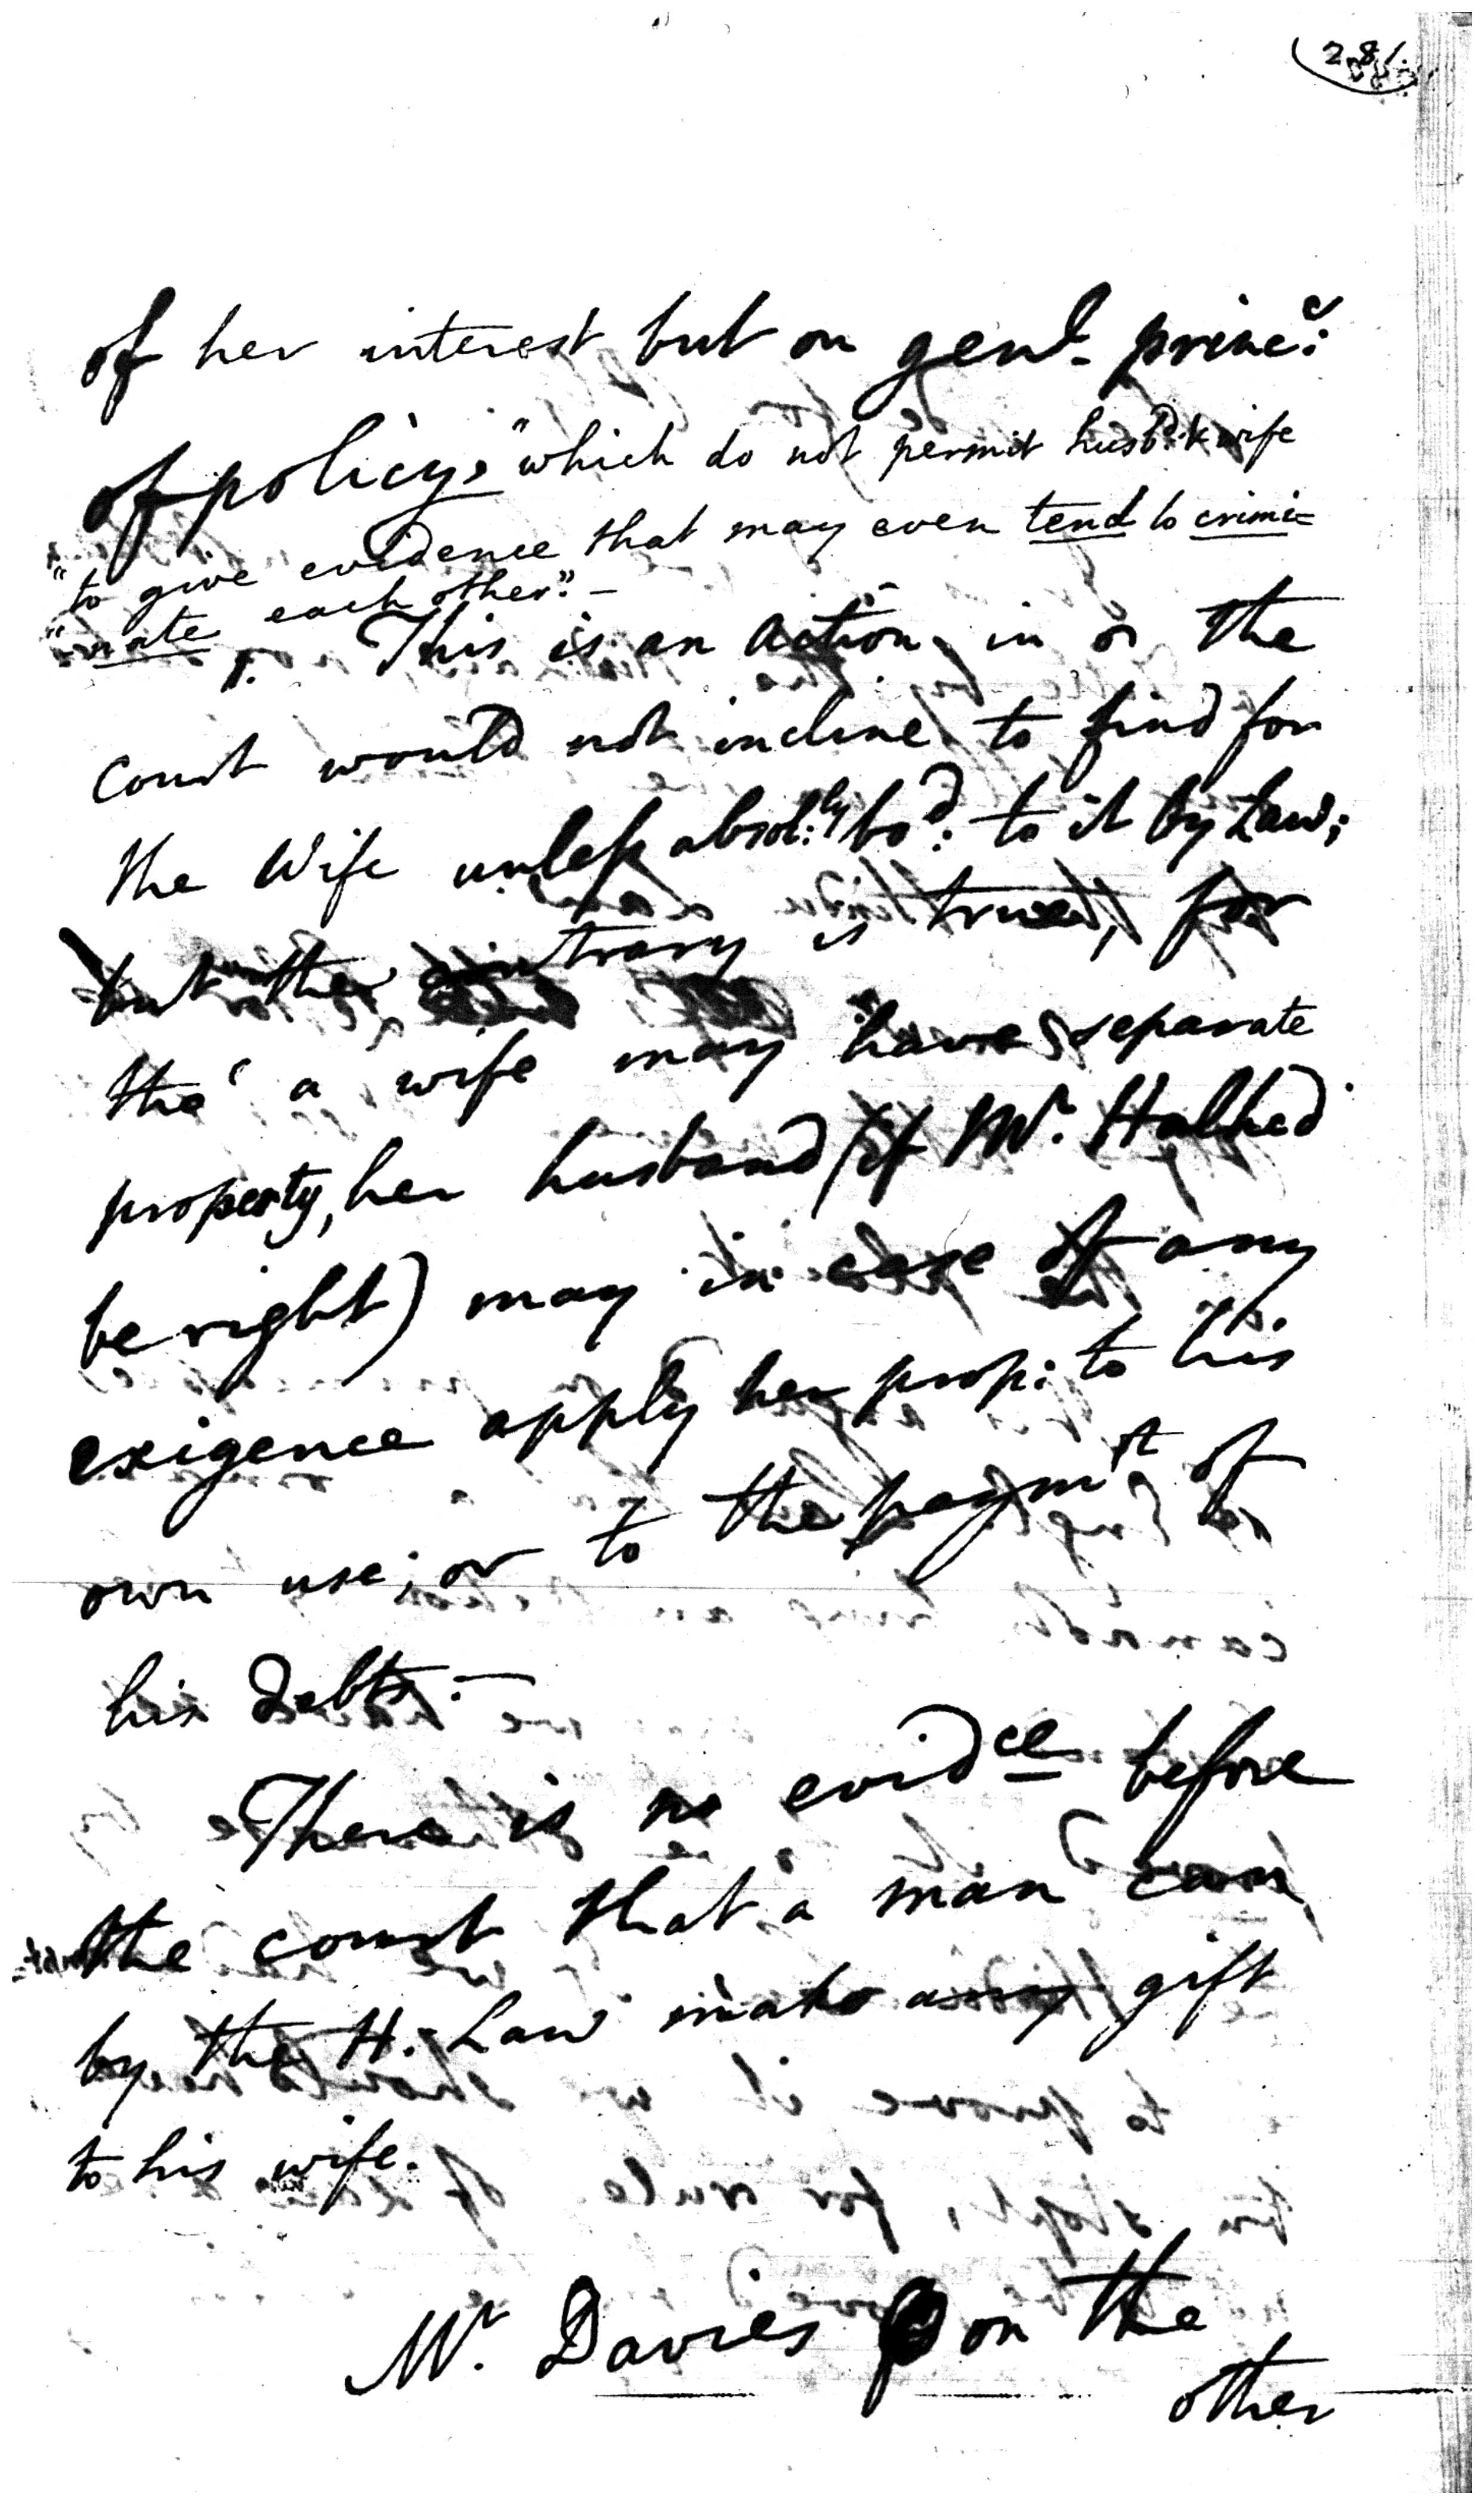 (28/.
of her interest but on genl. princ:
of policy, "which do not permit husbd. & wife
"to give evidence that may even tend to crimi=
"nate each other". —
This is an action in or the
Court would not incline to find for
the Wife unless absol:ly bod: to it by Law;
but the contrary is true, for
tho' a wife may have separate
property, her husband (if Mr. Halhed
be right) may in case of any
exigence apply her prop: to his
own use, or to the paymt of
his Debts. —
There is no evidce before
the court that a man can
by the H. Law make any gift
to his wife.
Mr. Davies on the
other